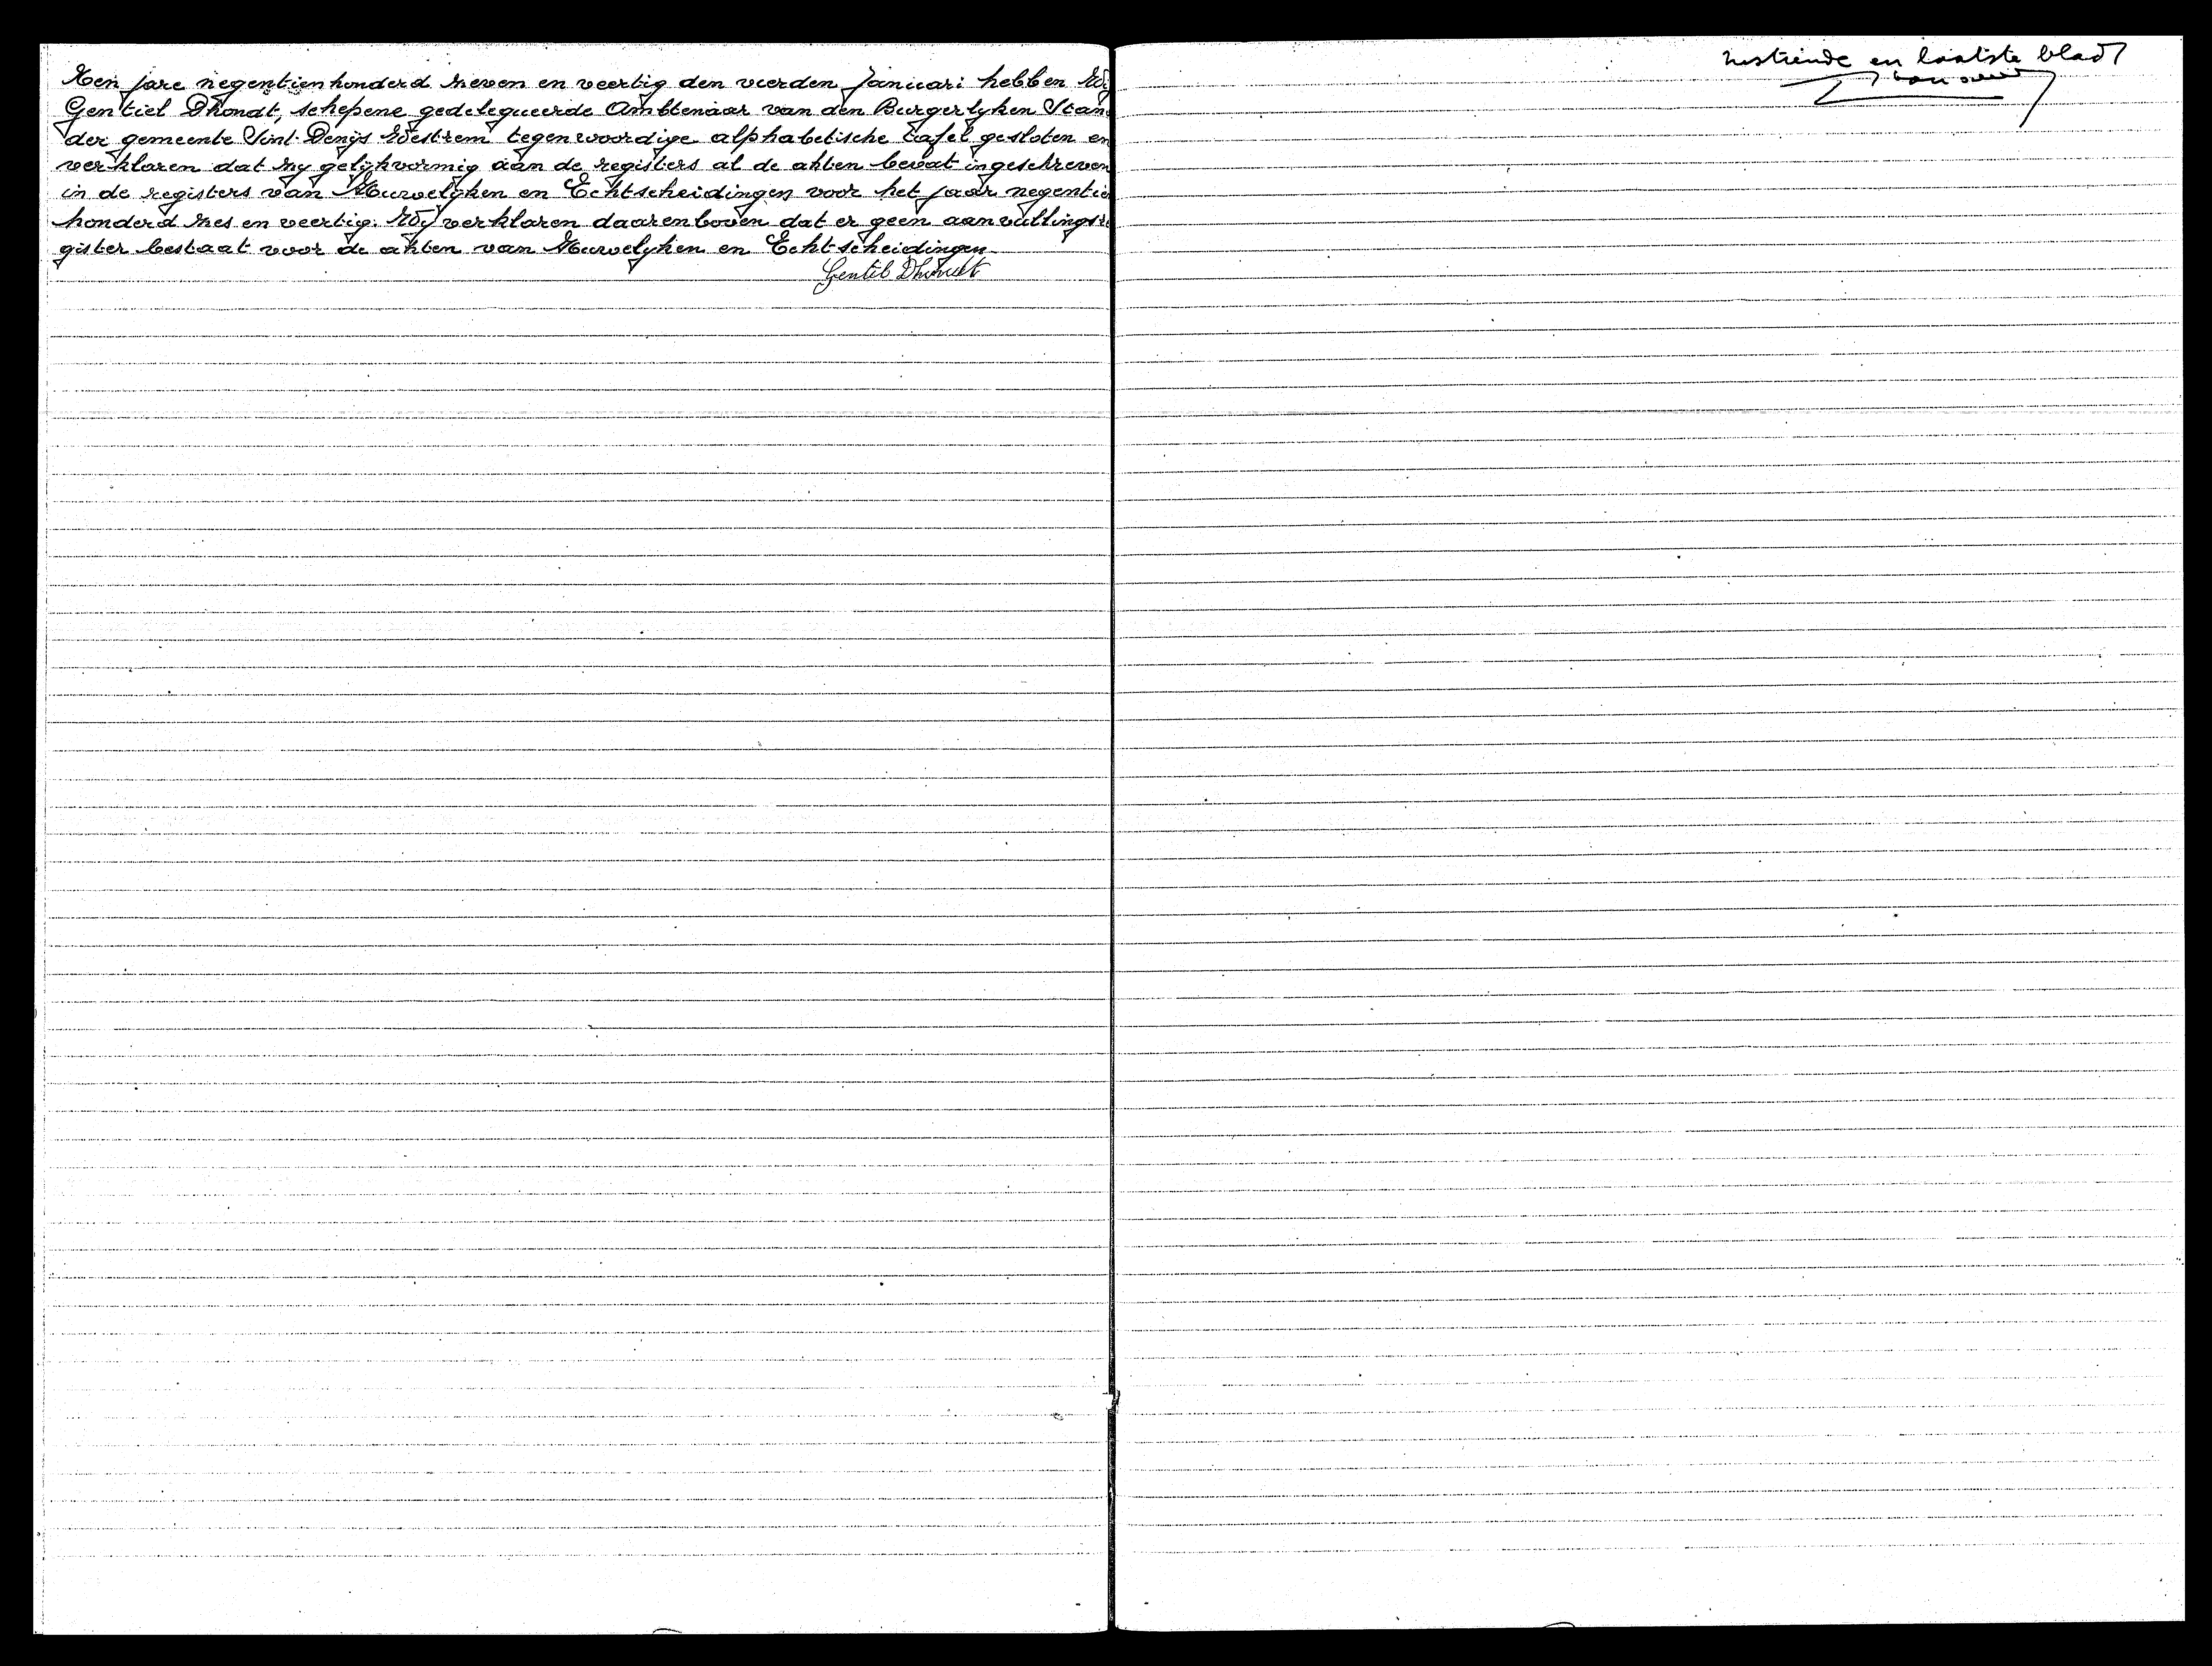 Ten jare negentienhonderd zeven en veertig den vierden Januari hebben Wij
Gentiel Dhondt, schepene gedelegueerde Ambtenaar van den Burgerlyken Stan
der gemeente Sint-Denijs Westrem tegenwoordige alphabetische tafel gesloten en
verklaren dat zy gelijkvormig aan de registers al de akten bevat ingeschreven
in de registers van Huwelyken en Echtscheidingen voor het jaar negentien
honderd zes en veertig. Wij verklaren daarenboven dat er geen aanvullingsre
gister bestaat voor de akten van Huwelyken en Echtscheidingen
Gentil Dhondt
zestiende en laatste blad